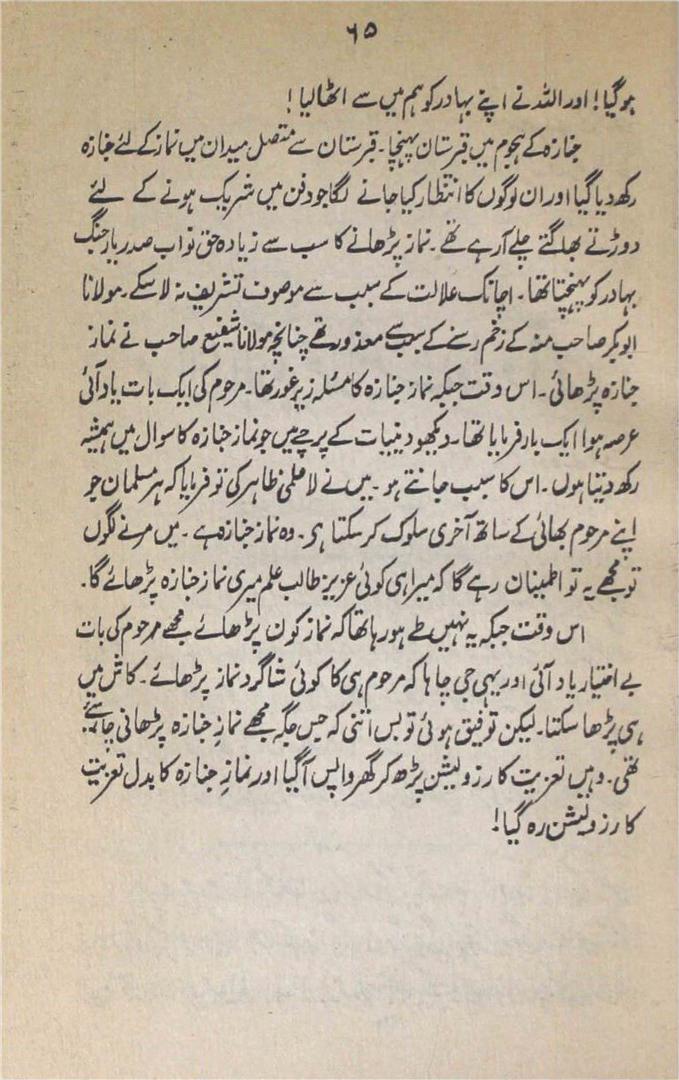 ۶۵
ہوگیا! اور اللہ نے اپنے بہادر کو ہم میں سے اٹھالیا!
جنازہ کے ہجوم میں قبرستان پہنچا۔ قبرستان سے متصل میدان میں نماز کے لئے جنازہ
رکھدیا گیا اور ان لوگوں کا انتظار کیا جانے لگا جو دفن میں شریک ہونے کے لئے
دوڑتے بھاگتے چلے آرہے تھے۔ نماز پڑھانے کا سب سے زیادہ حق نواب صدر یار جنگ
بہادر کو پہنچتا تھا۔ اچانک علالت کے سبب سے موصوف تشریف نہ لاسکے۔ مولانا
ابوبکر صاحب منہ کے زخم رسنے کے سبب سے معذور تھے چنانچہ مولانا شفیع صاحب نے نماز
جنازہ پڑھائی۔ اس وقت جبکہ نماز جنازہ کا مسئلہ زیر غور تھا۔ مرحوم کی ایک بات یاد آئی
عرصہ ہوا ایک بار فرمایا تھا۔ دیکھو دینیات کے پرچے میں جو نماز جنازہ کا سوال میں ہمیشہ
رکھ دیتا ہوں۔ اس کا سبب جانتے ہو۔ میں نے لاعلمی ظاہر کی تو فرمایا کہ ہر مسلمان جو
اپنے مرحوم بھائی کے ساتھ آخری سلوک کرسکتا ہی۔ وہ نماز جنازہ ہے۔ میں مرنے لگوں
تو مجھے یہ تو اطمینان رہے گا کہ میرا ہی کوئی عزیز طالب علم میری نماز جنازہ پڑھائے گا۔
اس وقت جبکہ یہ نہیں طے ہو رہا تھا کہ نماز کون پڑھائے مجھے مرحوم کی بات
بے اختیار یاد آئی اور یہی جی چاہا کہ مرحوم ہی کا کوئی شاگرد نماز پڑھائے۔ کاش میں
ہی پڑھا سکتا۔ لیکن توفیق ہوئی تو بس اتنی کہ جس جگہ مجھے نمازِ جنازہ پڑھانی چاہئے
تھی۔ وہیں تعزیت کا رزولیشن پڑھ کر گھر واپس آگیا اور نمازِ جنازہ کا بدل تعزیت
کا رزولیشن رہ گیا!